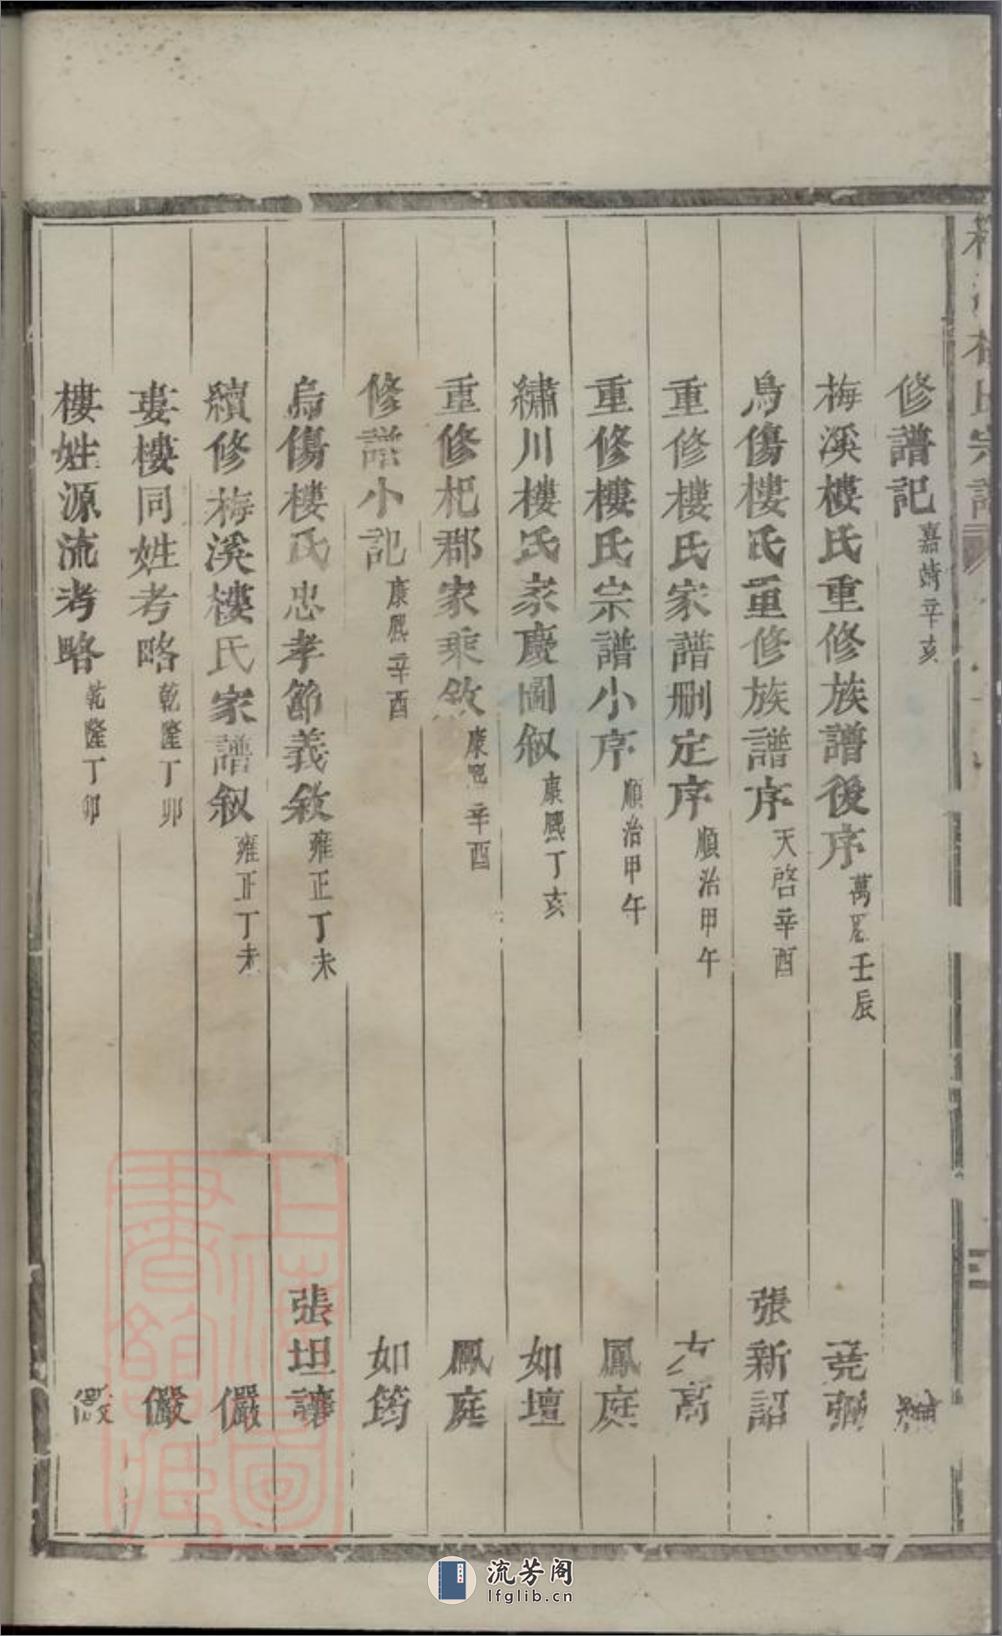 修譜記 嘉靖辛亥
梅溪樓氏重修族譜後序 萬 壬辰 堯弼
烏傷樓氏重修族譜序 天啓辛酉 張新詔
重修樓氏家譜刪定序 順治甲午 高
重修樓氏宗譜小序 順治甲午 鳳庭
繡川樓氏家慶圖叙 康熙丁亥 如壇
重修杞郡家乘敘 康熙辛酉 鳳庭
修譜小記 康熙辛酉 如筠
烏傷樓氏忠孝節義敘 雍正丁未 張坦讓
續修梅溪樓氏家譜叙 雍正丁未 儼
婁樓同姓考略 乾隆丁卯 儼
樓姓源流考略 乾隆丁卯 儼
上海圖書館藏
流芳阁
lfglib.cn